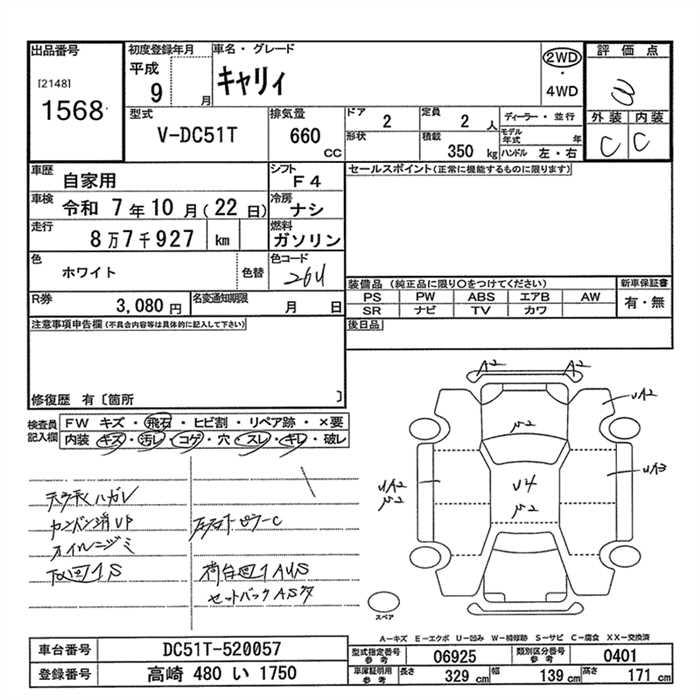 出品番号
[2148]
1568
初度登録年月
平成
9 月
車名・グレード
キャリィ
2WD
・
4WD
評価点
外装 内装
C C
型式
V-DC51T
排気量
660
CC
ドア
2
定員
2 人
形状
積載
350 kg
ディーラー・並行
モデル年式 年
ハンドル 左・右
車歴
自家用
シフト
F4
車検
令和 7年10月(22日)
冷房
ナシ
走行
8万7千927 km
燃料
ガソリン
色
ホワイト
色替
色コード
26U
R券
3,080 円
名変通知期限
月 日
セールスポイント(正常に機能するものに限ります)
装備品(純正品に限り〇をつけてください)
PS PW ABS エアB AW
SR ナビ TV カワ
新車保証書
有・無
後日品
注意事項申告欄(不具合内容等は具体的に記入して下さい)
修復歴 有〔箇所 〕
検査員記入欄
FW キズ・飛石・ヒビ割・リペア跡・×要
内装 キズ・汚レ・コゲ・穴・スレ・キレ・破レ
オイルニジミ
荷台凹1AUS
A2
A2
UA2
UA3
U4
UA2
スペア
A-キズ E-エクボ U-凹み W-補修跡 S-サビ C-腐食 XX-交換済
車台番号
DC51T-520057
登録番号
高崎 480 い 1750
型式指定番号
参考
06925
類別区分番号
参考
0401
車庫証明用
参考
長さ
329 cm
幅
139 cm
高さ
171 cm